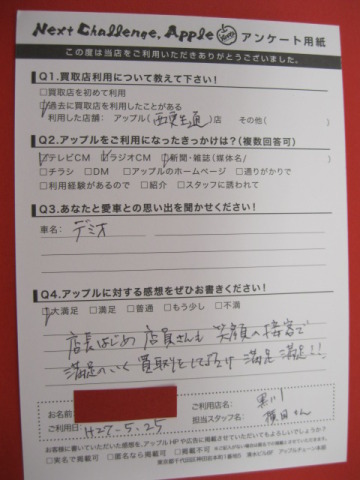 Next Challenge, Apple アンケート用紙
この度は当店をご利用いただきありがとうございました。
Q1.買取店利用について教えて下さい!
□買取店を初めて利用
□過去に買取店を利用したことがある
利用した店舗: アップル( 通)店 その他( )
Q2.アップルをご利用になったきっかけは?(複数回答可)
□テレビCM □ラジオCM □新聞・雑誌(媒体名/ )
□チラシ □DM □アップルのホームページ □通りがかりで
□利用経験があるので □紹介 □スタッフに誘われて
Q3.あなたと愛車との思い出を聞かせください!
車名: デミオ
Q4.アップルに対する感想をぜひお書きください!
□大満足 □満足 □普通 □もう少し □不満
店長はじめ 店員さんも 笑顔の接客で
満足のいく 買取りをして頂け 満足 満足!!
お名前
ご利用店名:
ご利用日: H27-5.25
担当スタッフ名: 横田さん
お客様に書いていただいた感想を、アップルHPや広告に掲載させていただいてもよろしいでしょうか?
□実名で掲載可 □匿名なら掲載可 □掲載不可